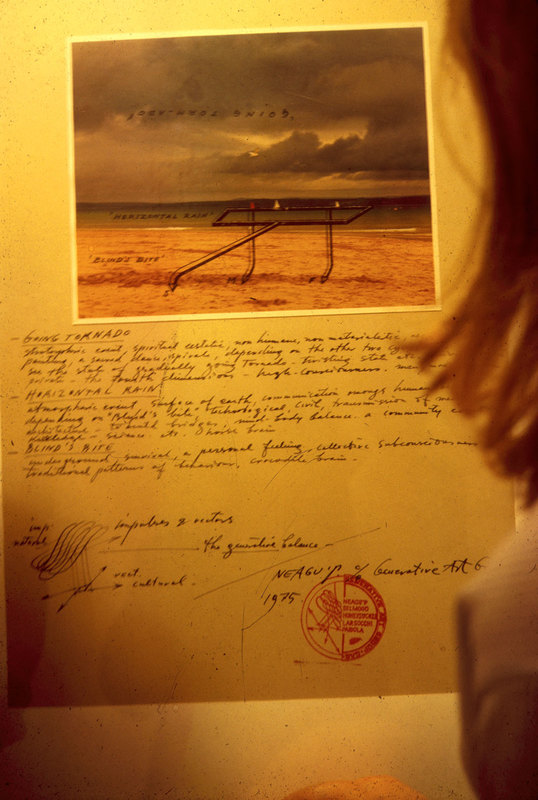 GOING TORNADO.
'HORIZONTAL RAIN'
'BLIND'S BITE'
- GOING TORNADO
event, spiritual ecstatic, non humane, non materialistic,
painting, a sacred dance, spiral, depending on the other two
see the state of gradually going tornado. Twisting state
private - the fourth dimensions - high-consciousness.
- HORIZONTAL RAIN
atmospheric event. surface of earth, communication amongs human
depending on "Blind's bite", technological, civil transmission of
architecture - to build bridges, mind body balance. a community
knowledge - science. etc. horse brain
- BLIND'S BITE
underground survival, a personal feeling, collective subconsciousness
traditional patterns of behaviour, crocodile brain -
imp. natural
impulses & vectors
the generative balance -
vect. cultural.
NEAGU'S of Generative Art G
1975
GENERATIVE ART GROUP - GAG
NEAGU P
BELMOOD
HONEYSUCKLE
LARSOCCHI
PAIDOLA